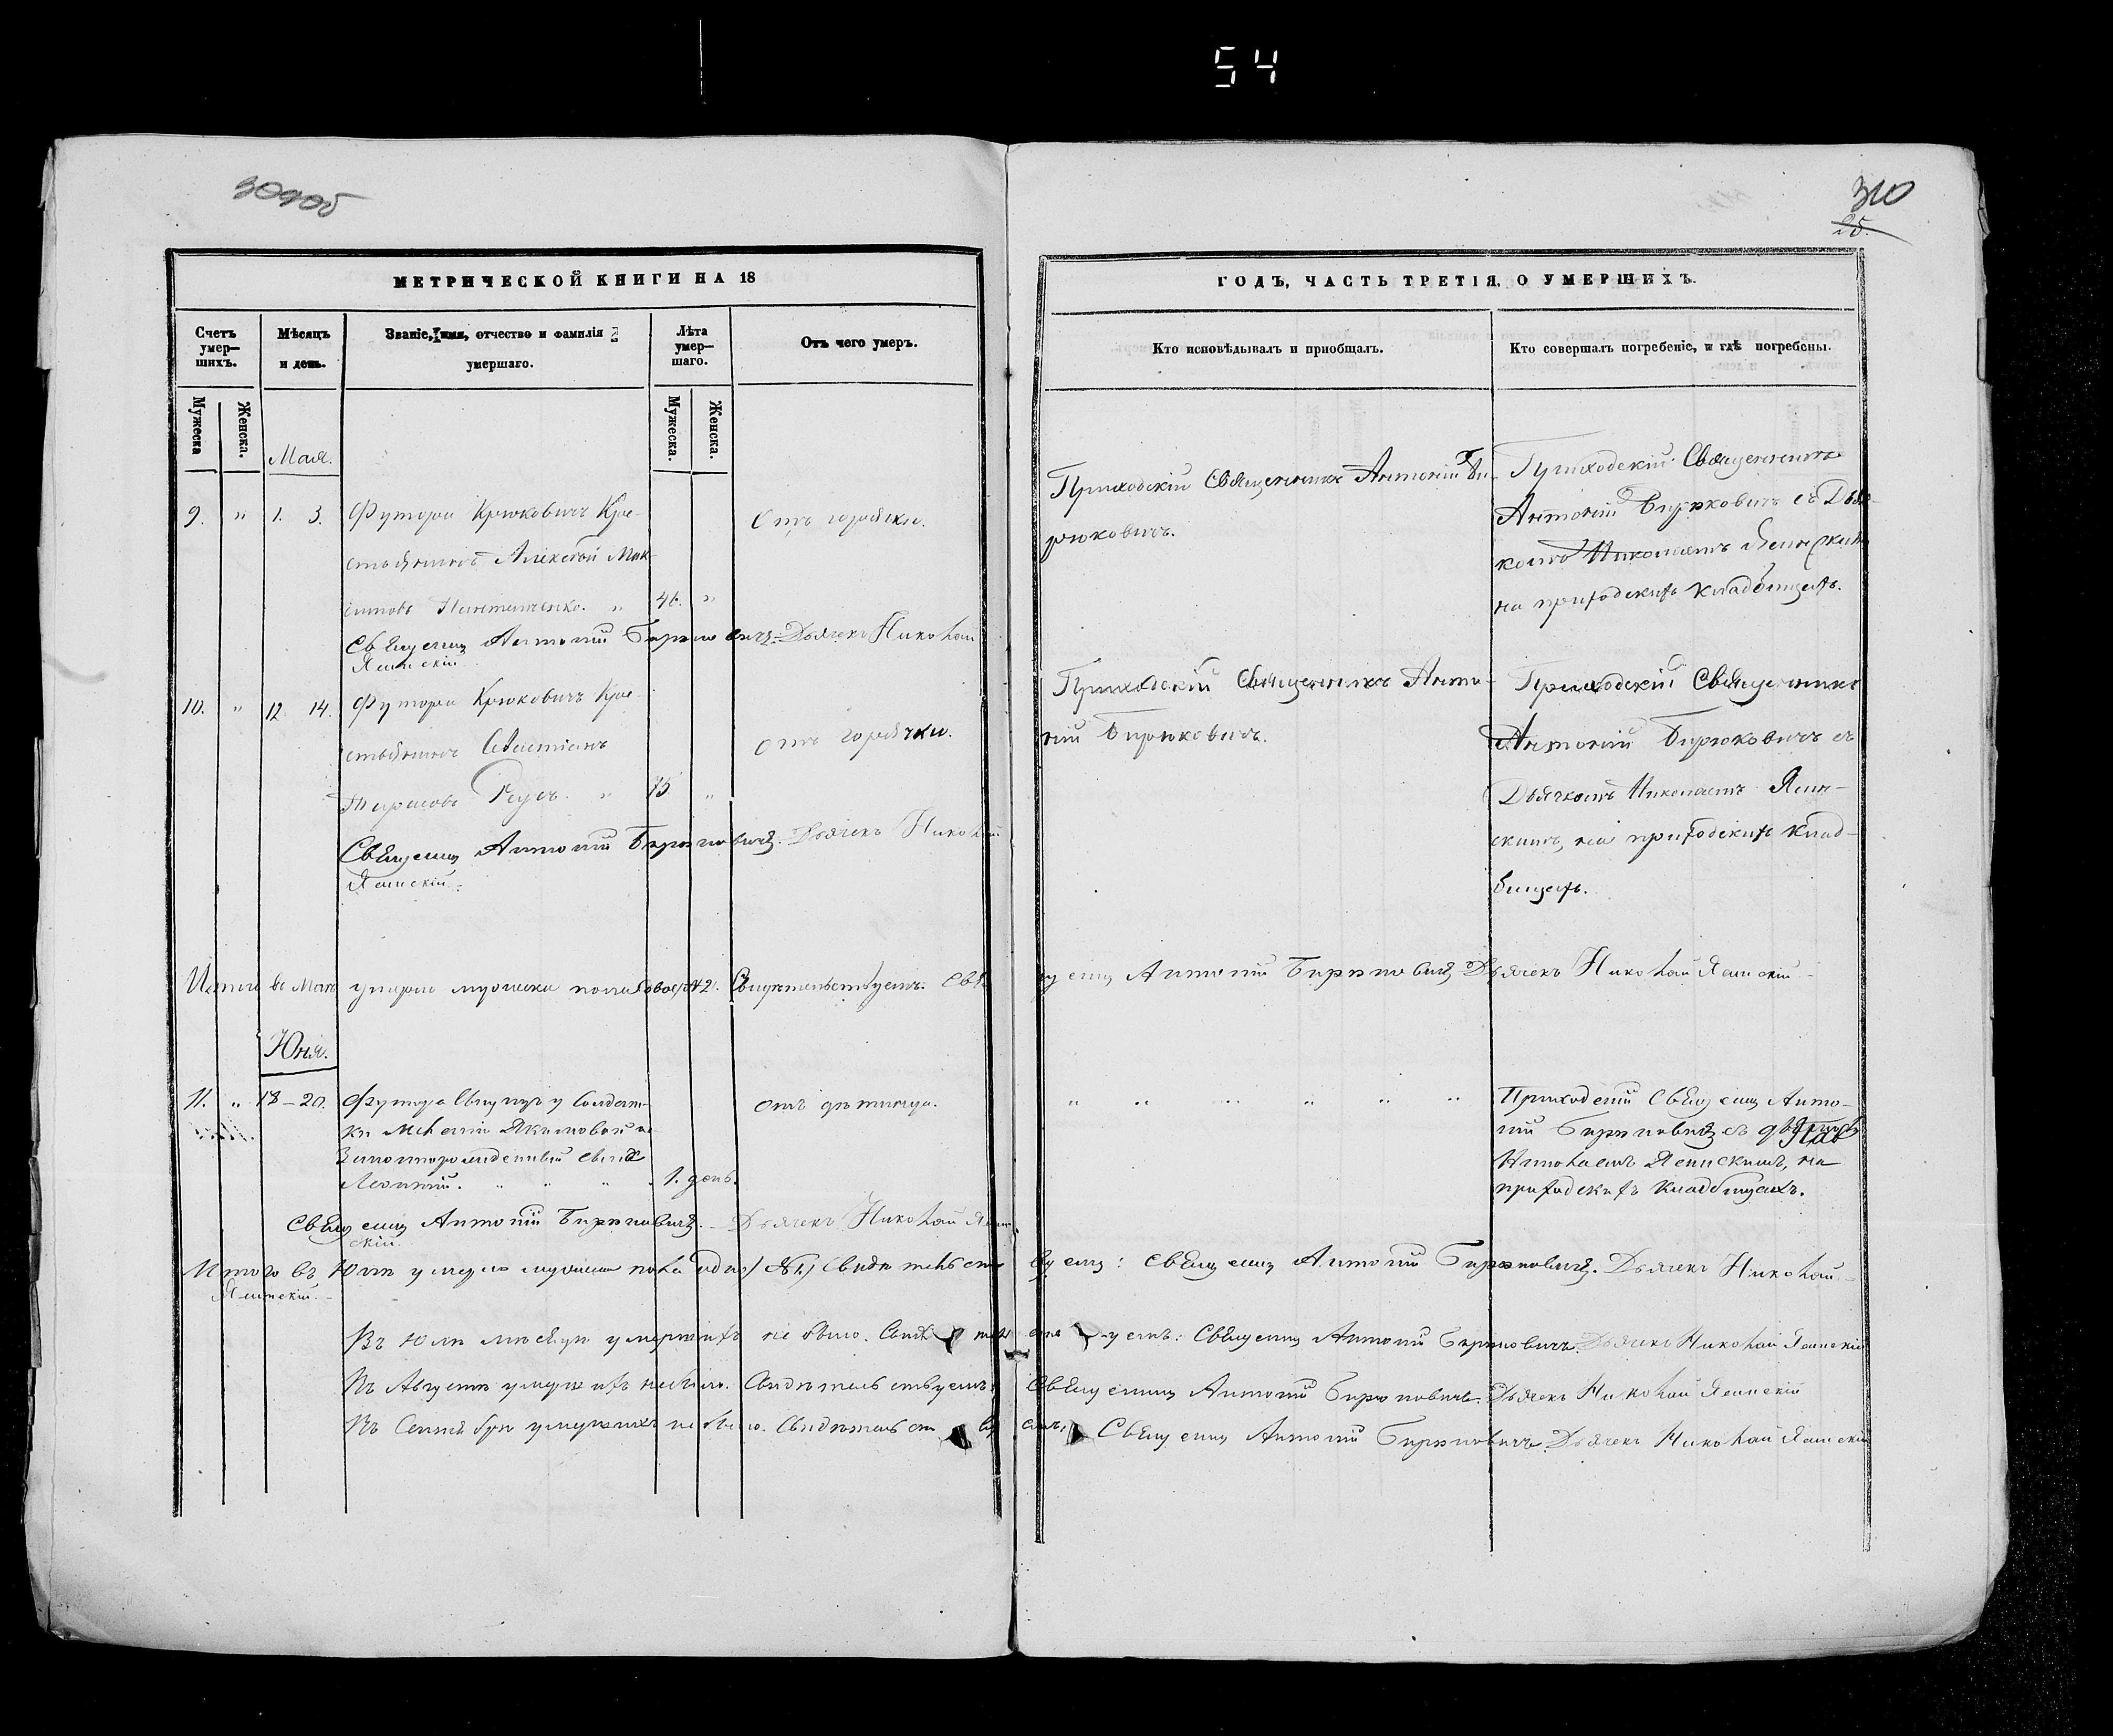 54
309об
310
25.
МЕТРИЧЕСКОЙ КНИГИ НА 18
ГОДЪ, ЧАСТЬ ТРЕТІЯ, О УМЕРШИХЪ.
Счетъ умер—шихъ.
Мѣсяцъ и день.
Званіе, имя, отчество и фамилія умершаго.
Лѣта умер—шаго.
Отъ чего умеръ.
Кто исповѣдывалъ и пріобщалъ.
Кто совершалъ погребеніе, и гдѣ погребены.
Мужеска
Женска.
Мужеска.
Женска.
Маія.
9. " 1. 3. Футора Крюковичъ Кре-
стьянинъ Алексѣй Мак-
симовъ "  46. "
Отъ горячки.
Приходскій Священникъ Антоній Би-
рюковичъ.
Приходскій Священникъ
Антоній Бирюковичъ съ Дья-
комъ Николаемъ
на приходскихъ кладбищахъ.
Священ Антоній Бирюковичъ. Дьячекъ Николай
Ясинскій
10. " 12 14. Футора Крюковичъ Кре-
стьянинъ Севастіанъ
Тарасовъ Реусъ. " 75 "
отъ горячки.
Приходскій Священникъ Анто-
ній Бирюковичъ.
Приходскій Священникъ
Антоній Бирюковичъ съ
Дьячкомъ Николаемъ Ясин-
скимъ, на приходскихъ клад-
бищахъ.
Священ Антоній Бирюковичъ. Дьячекъ Николай
Ясинскій.
Итого въ Маѣ умерло мужеска пола двое № 2. Свидѣтельствуетъ. Свя
щенн Антоній Бирюковичъ Дьячекъ Николай Ясинскій
Юня.
11. " 18 – 20. Футора у Солдат-
ки Якимовой не-
законнорожденный сынъ
Леонтій. " " " 1. день.
отъ
" " " " " "
Приходскій Священ Анто-
ній Бирюковичъ съ
Николаемъ Ясинскимъ, на
приходскихъ кладбищахъ.
Священ Антоній Бирюковичъ. – Дьячекъ Николай Ясин
скій.
Итого въ Юнѣ умерло мужеска пола одно № 1) Свидѣтельст
вуетъ: Священ Антоній Бирюковичъ. Дьячекъ Николай
Ясинскій. –
Въ Юлѣ мѣсяцѣ умершихъ не было. Свидѣтельствуетъ: Священ Антоній Бирюковичъ. Дьячекъ Николай Ясинскій
Въ Августѣ умершихъ небыло. Свидѣтельствуетъ Священникъ Антоній Бирюковичъ. Дьячекъ Николай Ясинскій
Въ Сентябрѣ умершихъ не было. Свидѣтельствуетъ, Священ Антоній Бирюковичъ. Дьячекъ Николай Ясинскій